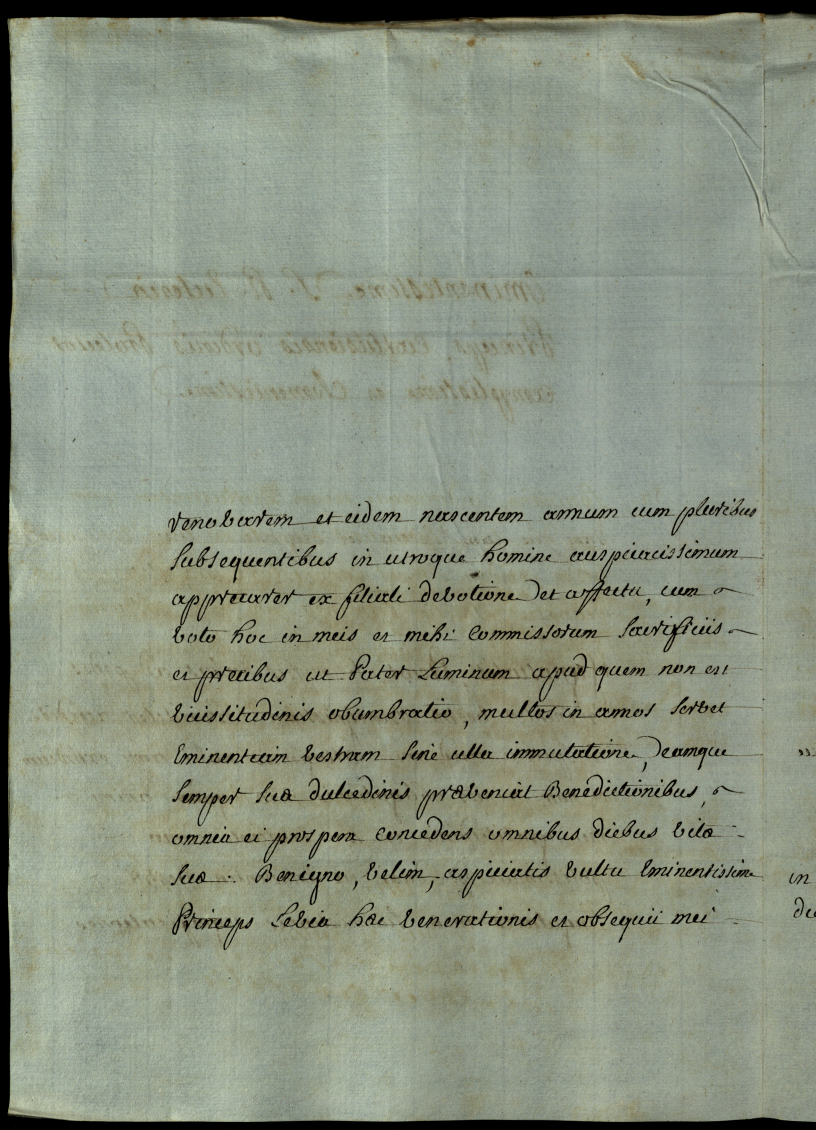 venerarem et eidem nascentem annum cum pluribus
subsequentibus in utroque homine auspicatissimum
apprecarer ex filiali devotione et affectu, cum
voto hoc in meis et mihi commissorum sacrificiis
et precibus ut Pater Luminum apud quem non est
vicissitudinis obumbratio, multos in annos servet
Eminentiam vestram sine ulla immutatione, eamque
semper suæ dulcedinis præveniat Benedictionibus,
omnia ei prospera concedens omnibus diebus vitæ
suæ. Benigno, velim, aspiciatis vultu Eminentissime
Princeps levia hæc venerationis et obsequii mei
in